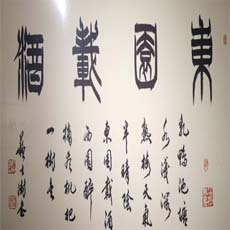 東園載酒
乳鴨池塘
水淺深
熟梅天氣
半晴陰
東園載酒
西園醉
摘盡枇杷
一樹金
蘇士澍書